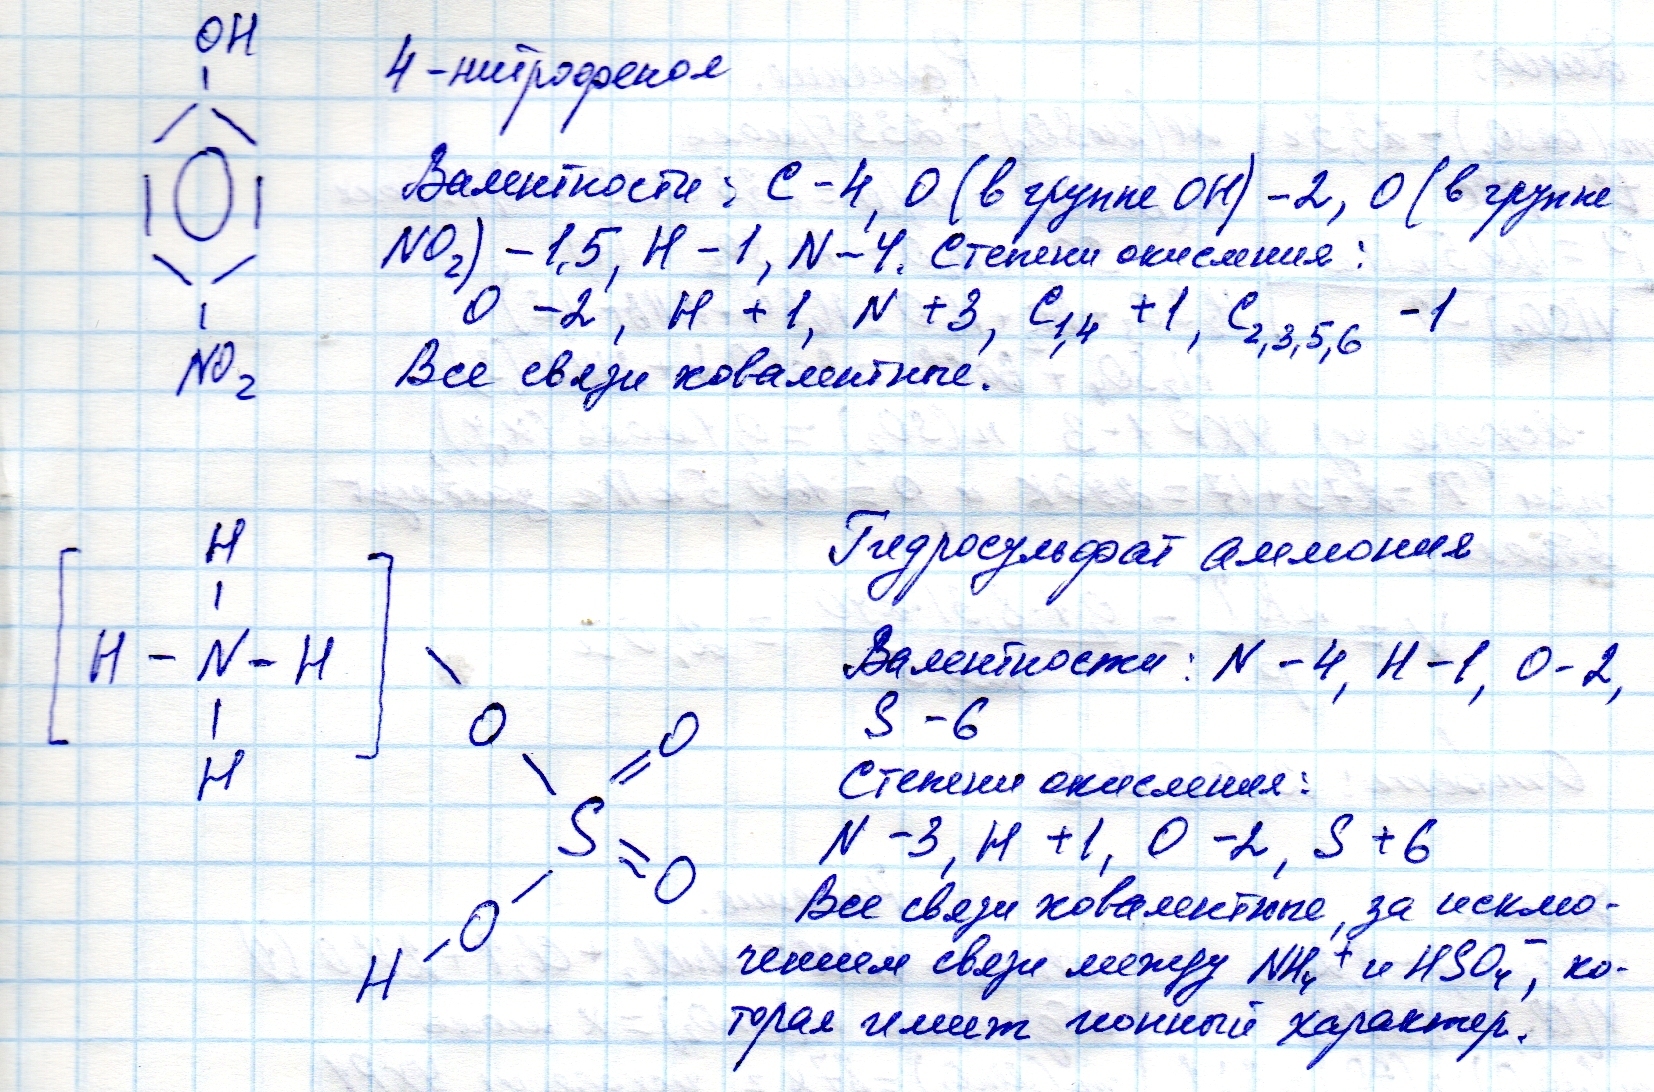 OH
4-нитрофенол
Валентности: C - 4, O (в группе OH) - 2, O (в группе
NO₂) - 1,5, H - 1, N - 4. Степени окисления:
O -2, H +1, N +3, C₁,₄ +1, C₂,₃,₅,₆ -1
NO₂
Все связи ковалентные.
H
H - N - H
H
O
O
S
O
O
H
Гидросульфат аммония
Валентности: N - 4, H - 1, O - 2,
S - 6
Степени окисления:
N -3, H +1, O -2, S +6
Все связи ковалентные, за исклю-
чением связи между NH₄⁺ и HSO₄⁻, ко-
торая имеет ионный характер.